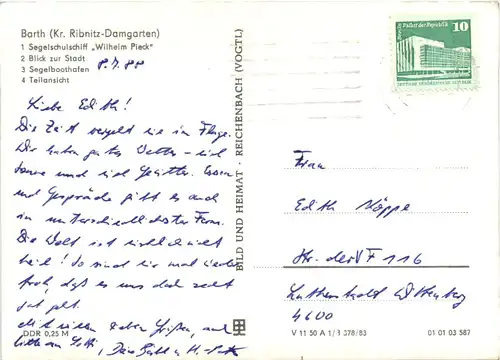 Barth (Kr. Ribnitz-Damgarten)
1 Segelschulschiff „Wilhelm Pieck"
2 Blick zur Stadt
3 Segelboothafen
4 Teilansicht
8.7.88
Liebe Edith!
Die Zeit vergeht wie im Fluge.
Wir haben gutes Wetter – viel
Sonne und viel Gewitter. Essen
und Gespräche gibt es auch
in unterschiedlichster Form.
Die Welt ist nicht
heil! So sind wir mal wieder
froh, daß es uns doch recht
gut geht.
Mit vielen lieben Grüßen, auch
DDR 0,25 M
BILD UND HEIMAT · REICHENBACH (VOGTL)
Palast der Republik
10
DEUTSCHE DEMOKRATISCHE REPUBLIK
Frau
Edith Köppe
Str. der VF 116
Lutherstadt Wittenberg
4600
V 11 50 A 1/B 378/83
01 01 03 587